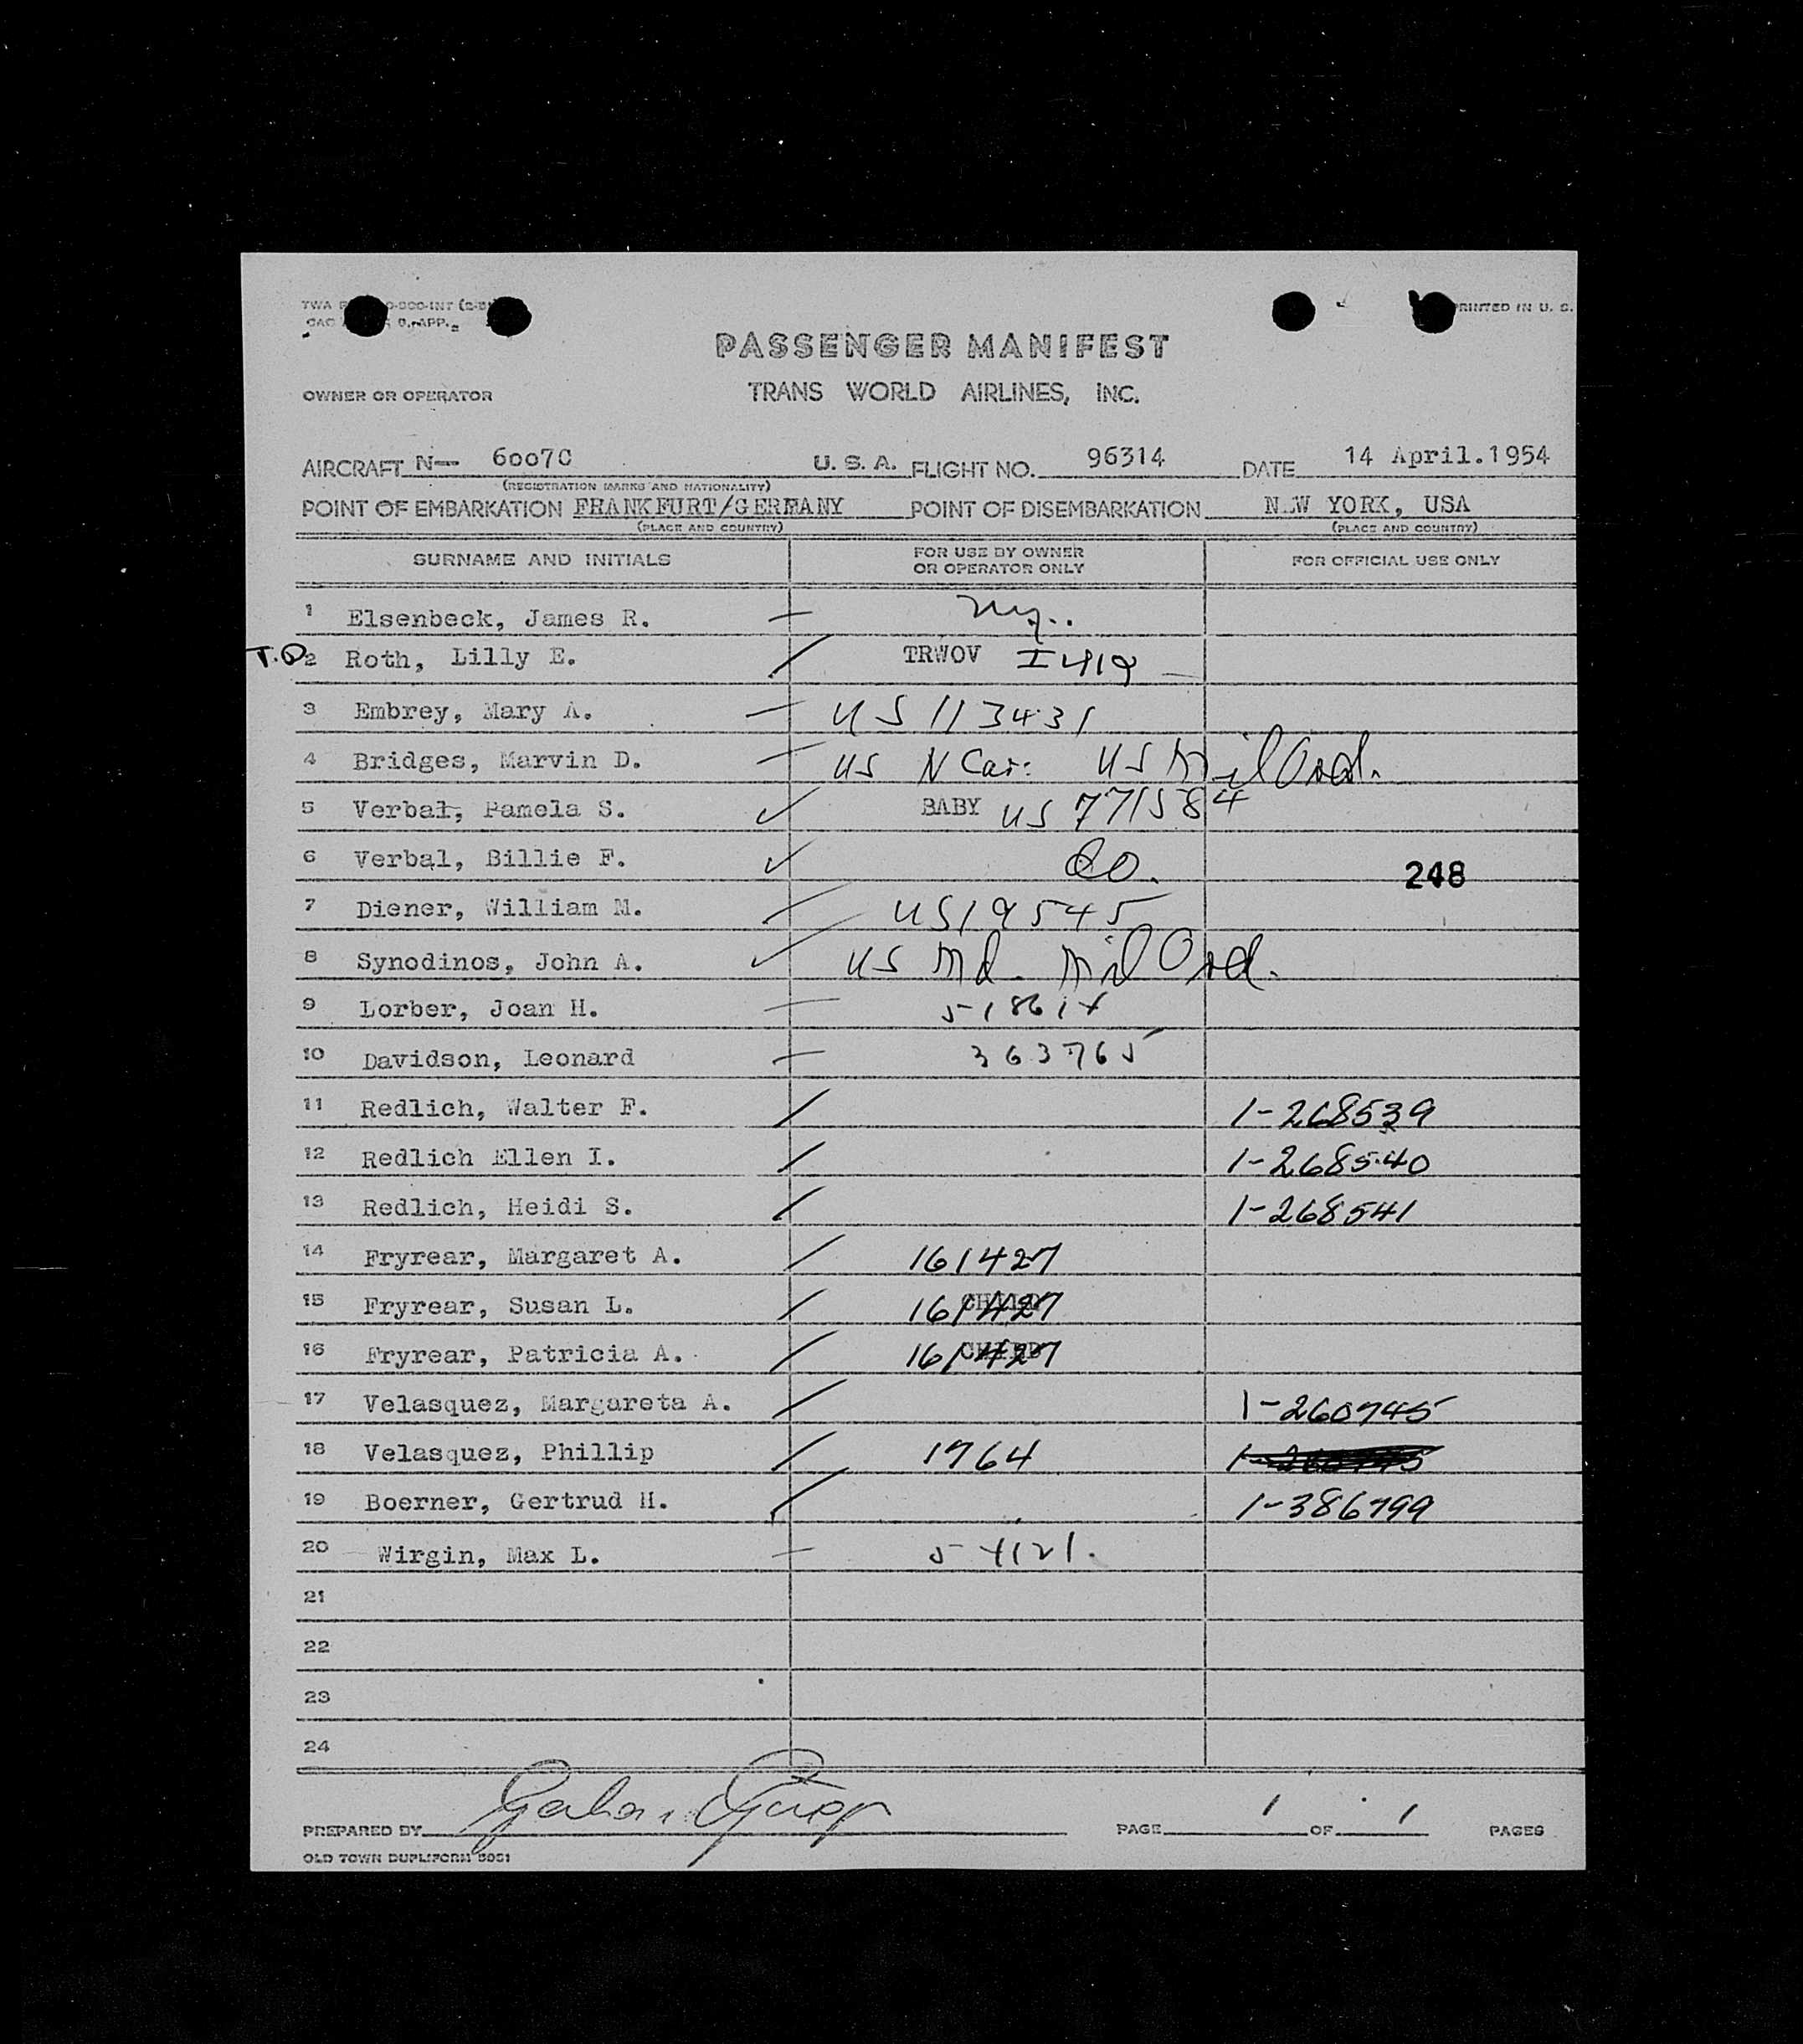 PRINTED IN U. S.
PASSENGER MANIFEST
TRANS WORLD AIRLINES, INC.
OWNER OR OPERATOR
AIRCRAFT N— 6007C U. S. A. FLIGHT NO. 96314 DATE 14 April.1954
(REGISTRATION MARKS AND NATIONALITY)
POINT OF EMBARKATION FRANKFURT/GERMANY POINT OF DISEMBARKATION N.W YORK, USA
(PLACE AND COUNTRY) (PLACE AND COUNTRY)
SURNAME AND INITIALS FOR USE BY OWNER OR OPERATOR ONLY FOR OFFICIAL USE ONLY
1 Elsenbeck, James R. — ny..
T.O. 2 Roth, Lilly E. / TRWOV I 419
3 Embrey, Mary A. — US 113431
4 Bridges, Marvin D. — US N Car: US Mil Ord.
5 Verbal, Pamela S. ✓ BABY US 771584
6 Verbal, Billie F. ✓ do. 248
7 Diener, William M. / US 19545
8 Synodinos, John A. ✓ US Md. Mil Ord.
9 Lorber, Joan H. —
10 Davidson, Leonard — 363765
11 Redlich, Walter F. / 1-268539
12 Redlich Ellen I. / 1-268540
13 Redlich, Heidi S. / 1-268541
14 Fryrear, Margaret A. / 161427
15 Fryrear, Susan L. / CHILD 161427
16 Fryrear, Patricia A. / CHILD 161427
17 Velasquez, Margareta A. / 1-260745
18 Velasquez, Phillip / 1764
19 Boerner, Gertrud H. / 1-386799
20 Wirgin, Max L. —
21
22
23
24
PREPARED BY PAGE 1 OF 1 PAGES
OLD TOWN DUPLIFORM 5051